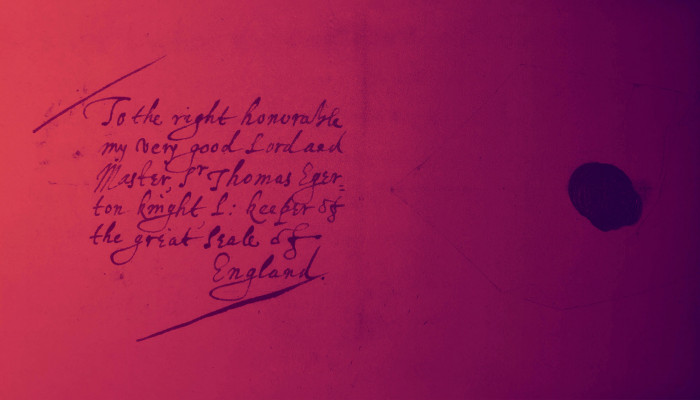 To the right honorable
my very good Lord and
Master, Sr Thomas Eger=
ton knight L: keeper of
the great Seale of
England.